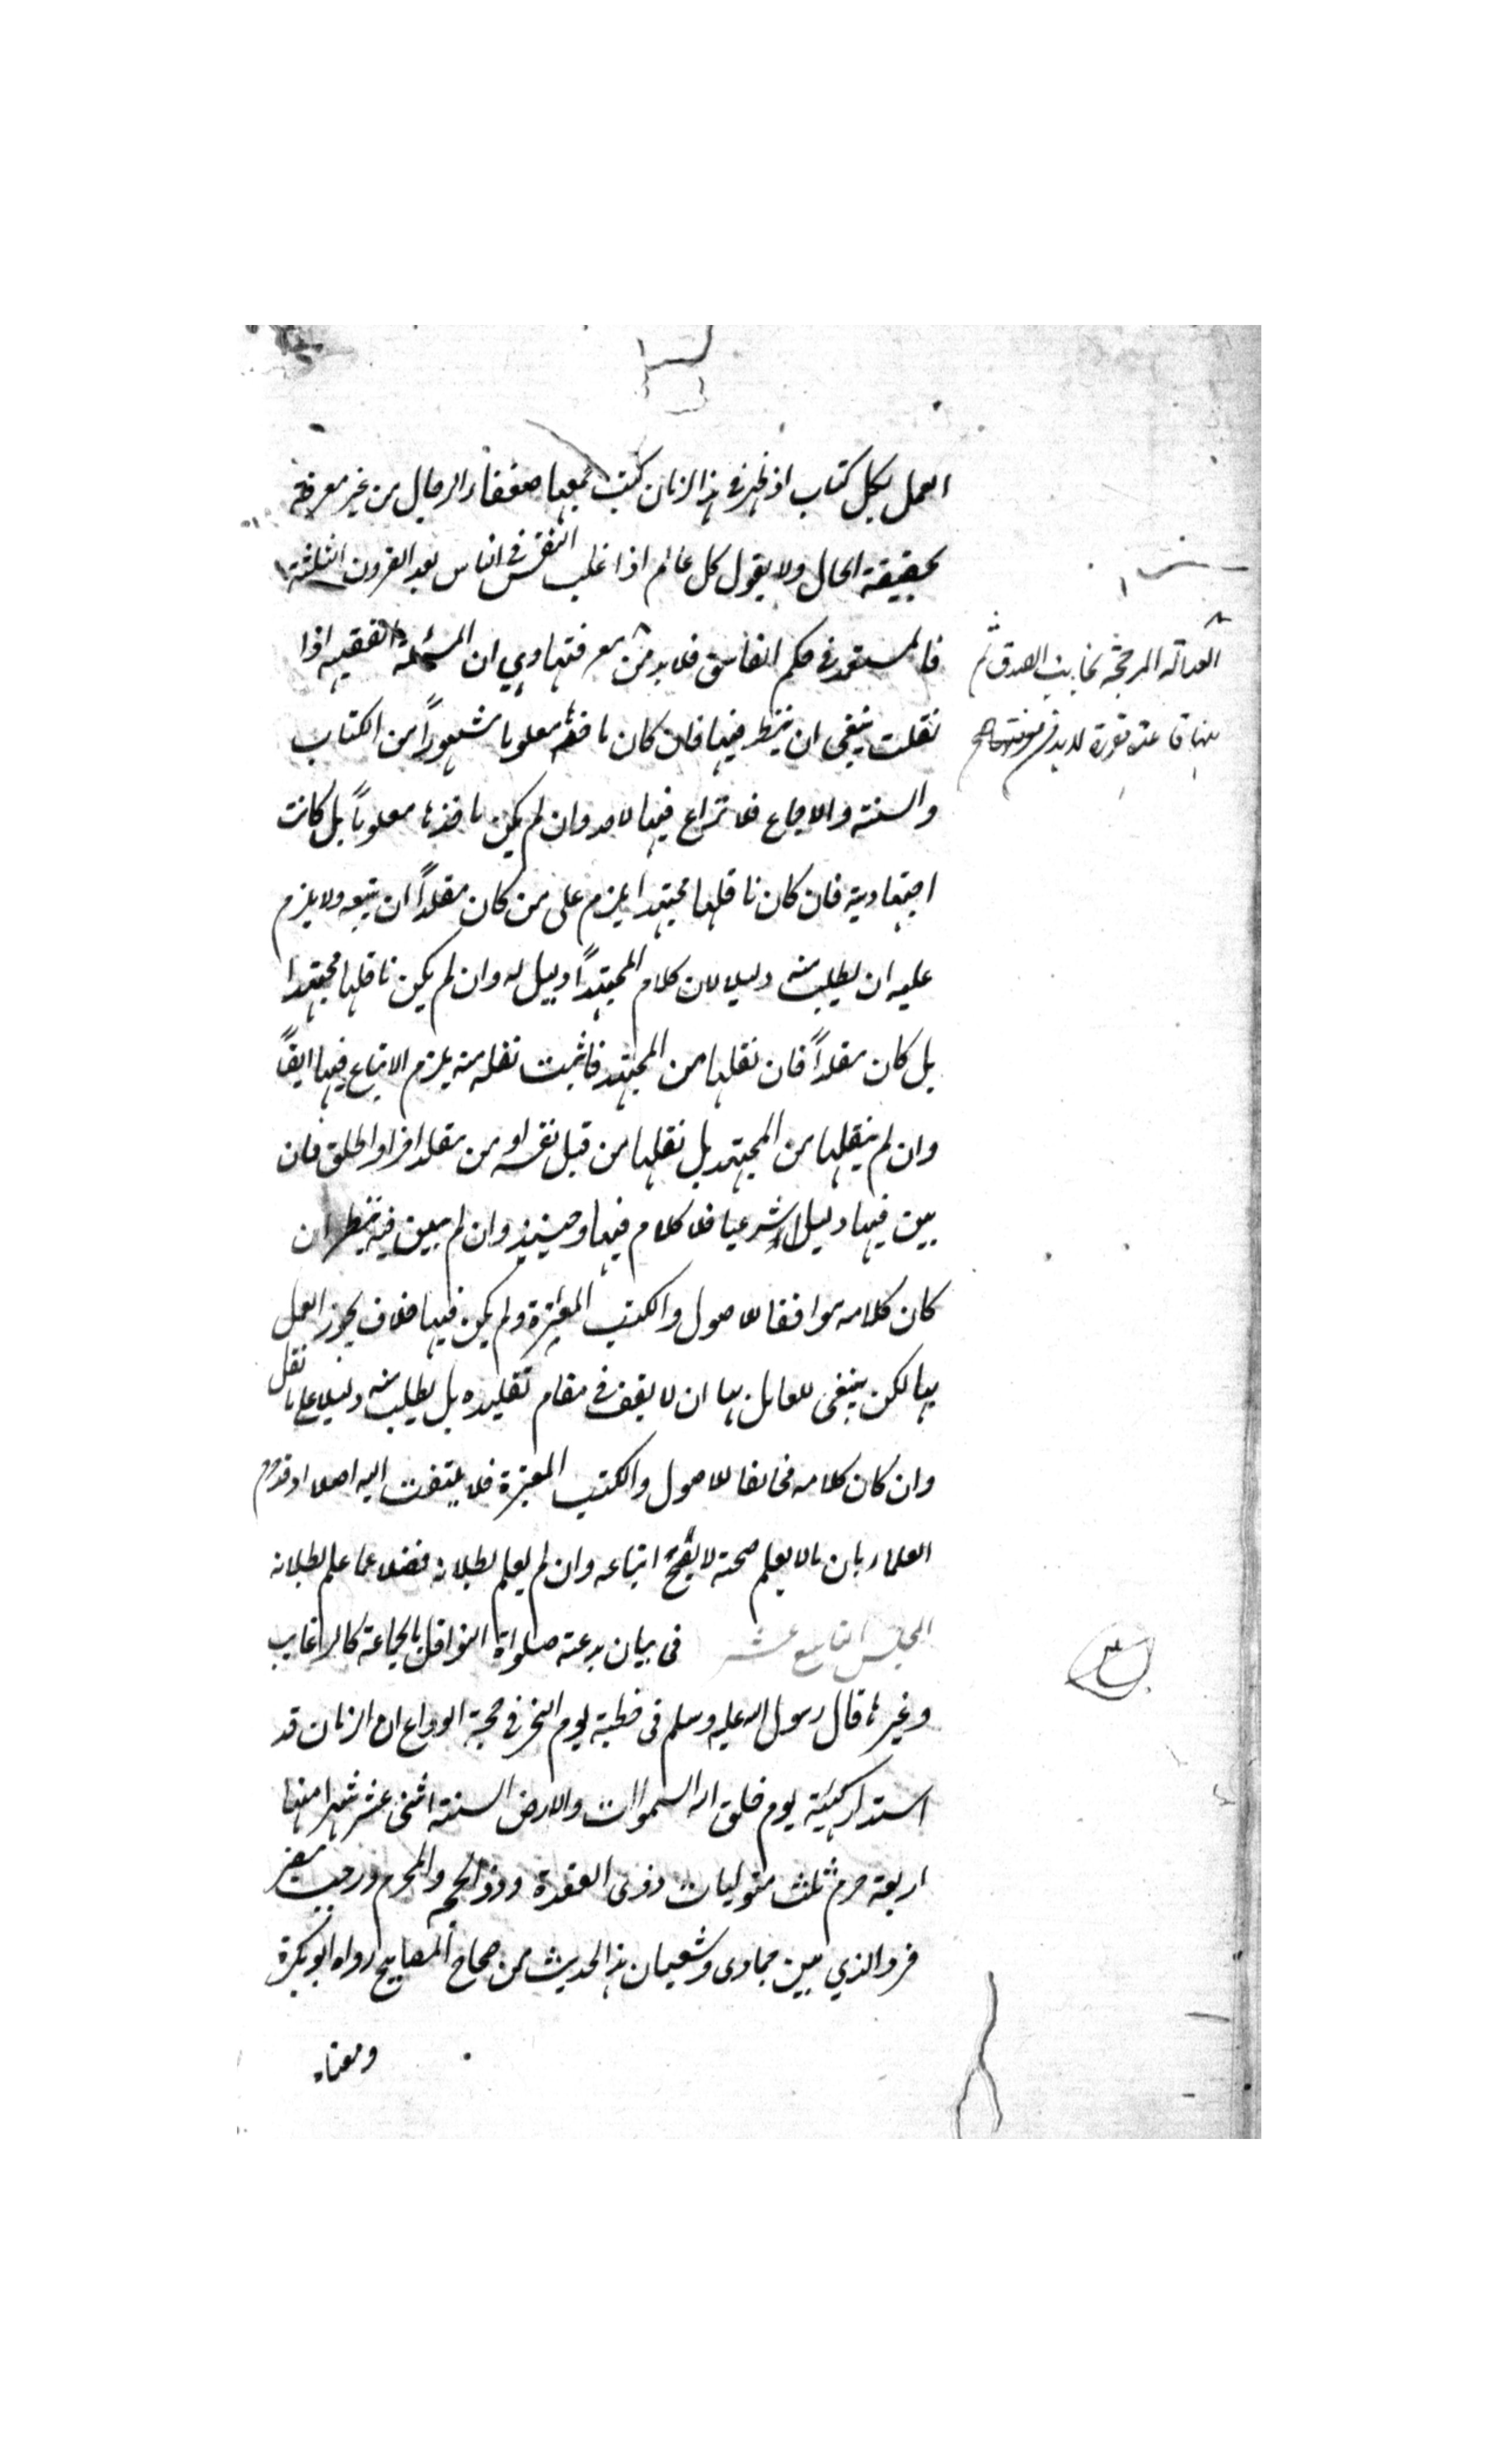 العمل بكل كتاب اذ ظهر في هذا الزمان كتب جمعها ضعفاء الرجال من غير معرفة
بحقيقة الحال ولا بقول كل عالم اذا غلب الفسق في الناس بعد القرون الثلثة
فالمستور في حكم الفاسق فلا بد من معرفتها وي ان المسئلة الفقهية اذا
نقلت ينبغي ان ينظر فيها فان كان ماخذها معلوما مشهوراً من الكتاب
والسنة والاجماع فلا نزاع فيها لاحد وان لم يكن ماخذها معلوماً بل كانت
اجتهادية فان كان ناقلها مجتهدا يلزم على من كان مقلداً ان يتبعه ولا يلزم
عليه ان يطلب منه دليلا لان كلام المجتهد دليل له وان لم يكن ناقلها مجتهدا
بل كان مقلداً فان نقلها من المجتهد فاثبت نقله منه يلزم الاتباع فيها ايضاً
وان لم ينقلها من المجتهد بل نقلها من قبل نفسه او من مقلد اخر او اطلق فان
بين فيها دليلا شرعيا فلا كلام فيها وحينئذ وان لم يبين فيه ينظر ان
كان كلامه موافقا للاصول والكتب المعتبرة ولم يكن فيها خلاف يجوز العمل
بها لكن ينبغي للعامل بها ان لا يقف في مقام تقليده بل يطلب منه دليلا على ما نقل
وان كان كلامه مخالفا للاصول والكتب المعتبرة فلا يلتفت اليه اصلا اذ قد صرح
العلماء بان ما لا يعلم صحته لا يصح اتباعه وان لم يعلم بطلانه فضلا عما علم بطلانه
المجلس التاسع عشر في بيان بدعة صلواة النوافل بالجماعة كالرغايب
وغيرها قال رسول الله عليه وسلم في خطبة يوم النحر في حجة الوداع ان الزمان قد
استدار كهيئة يوم خلق الله السموات والارض السنة اثنى عشر شهرا منها
اربعة حرم ثلث متواليات ذوى القعدة وذو الحجه والمحرم ورجب مضر
فرد الذي بين جمادى وشعبان هذا الحديث من صحاح المصابيح رواه ابو بكرة
ومعناه
العدالة المرجحة لجانب الصدق ثم